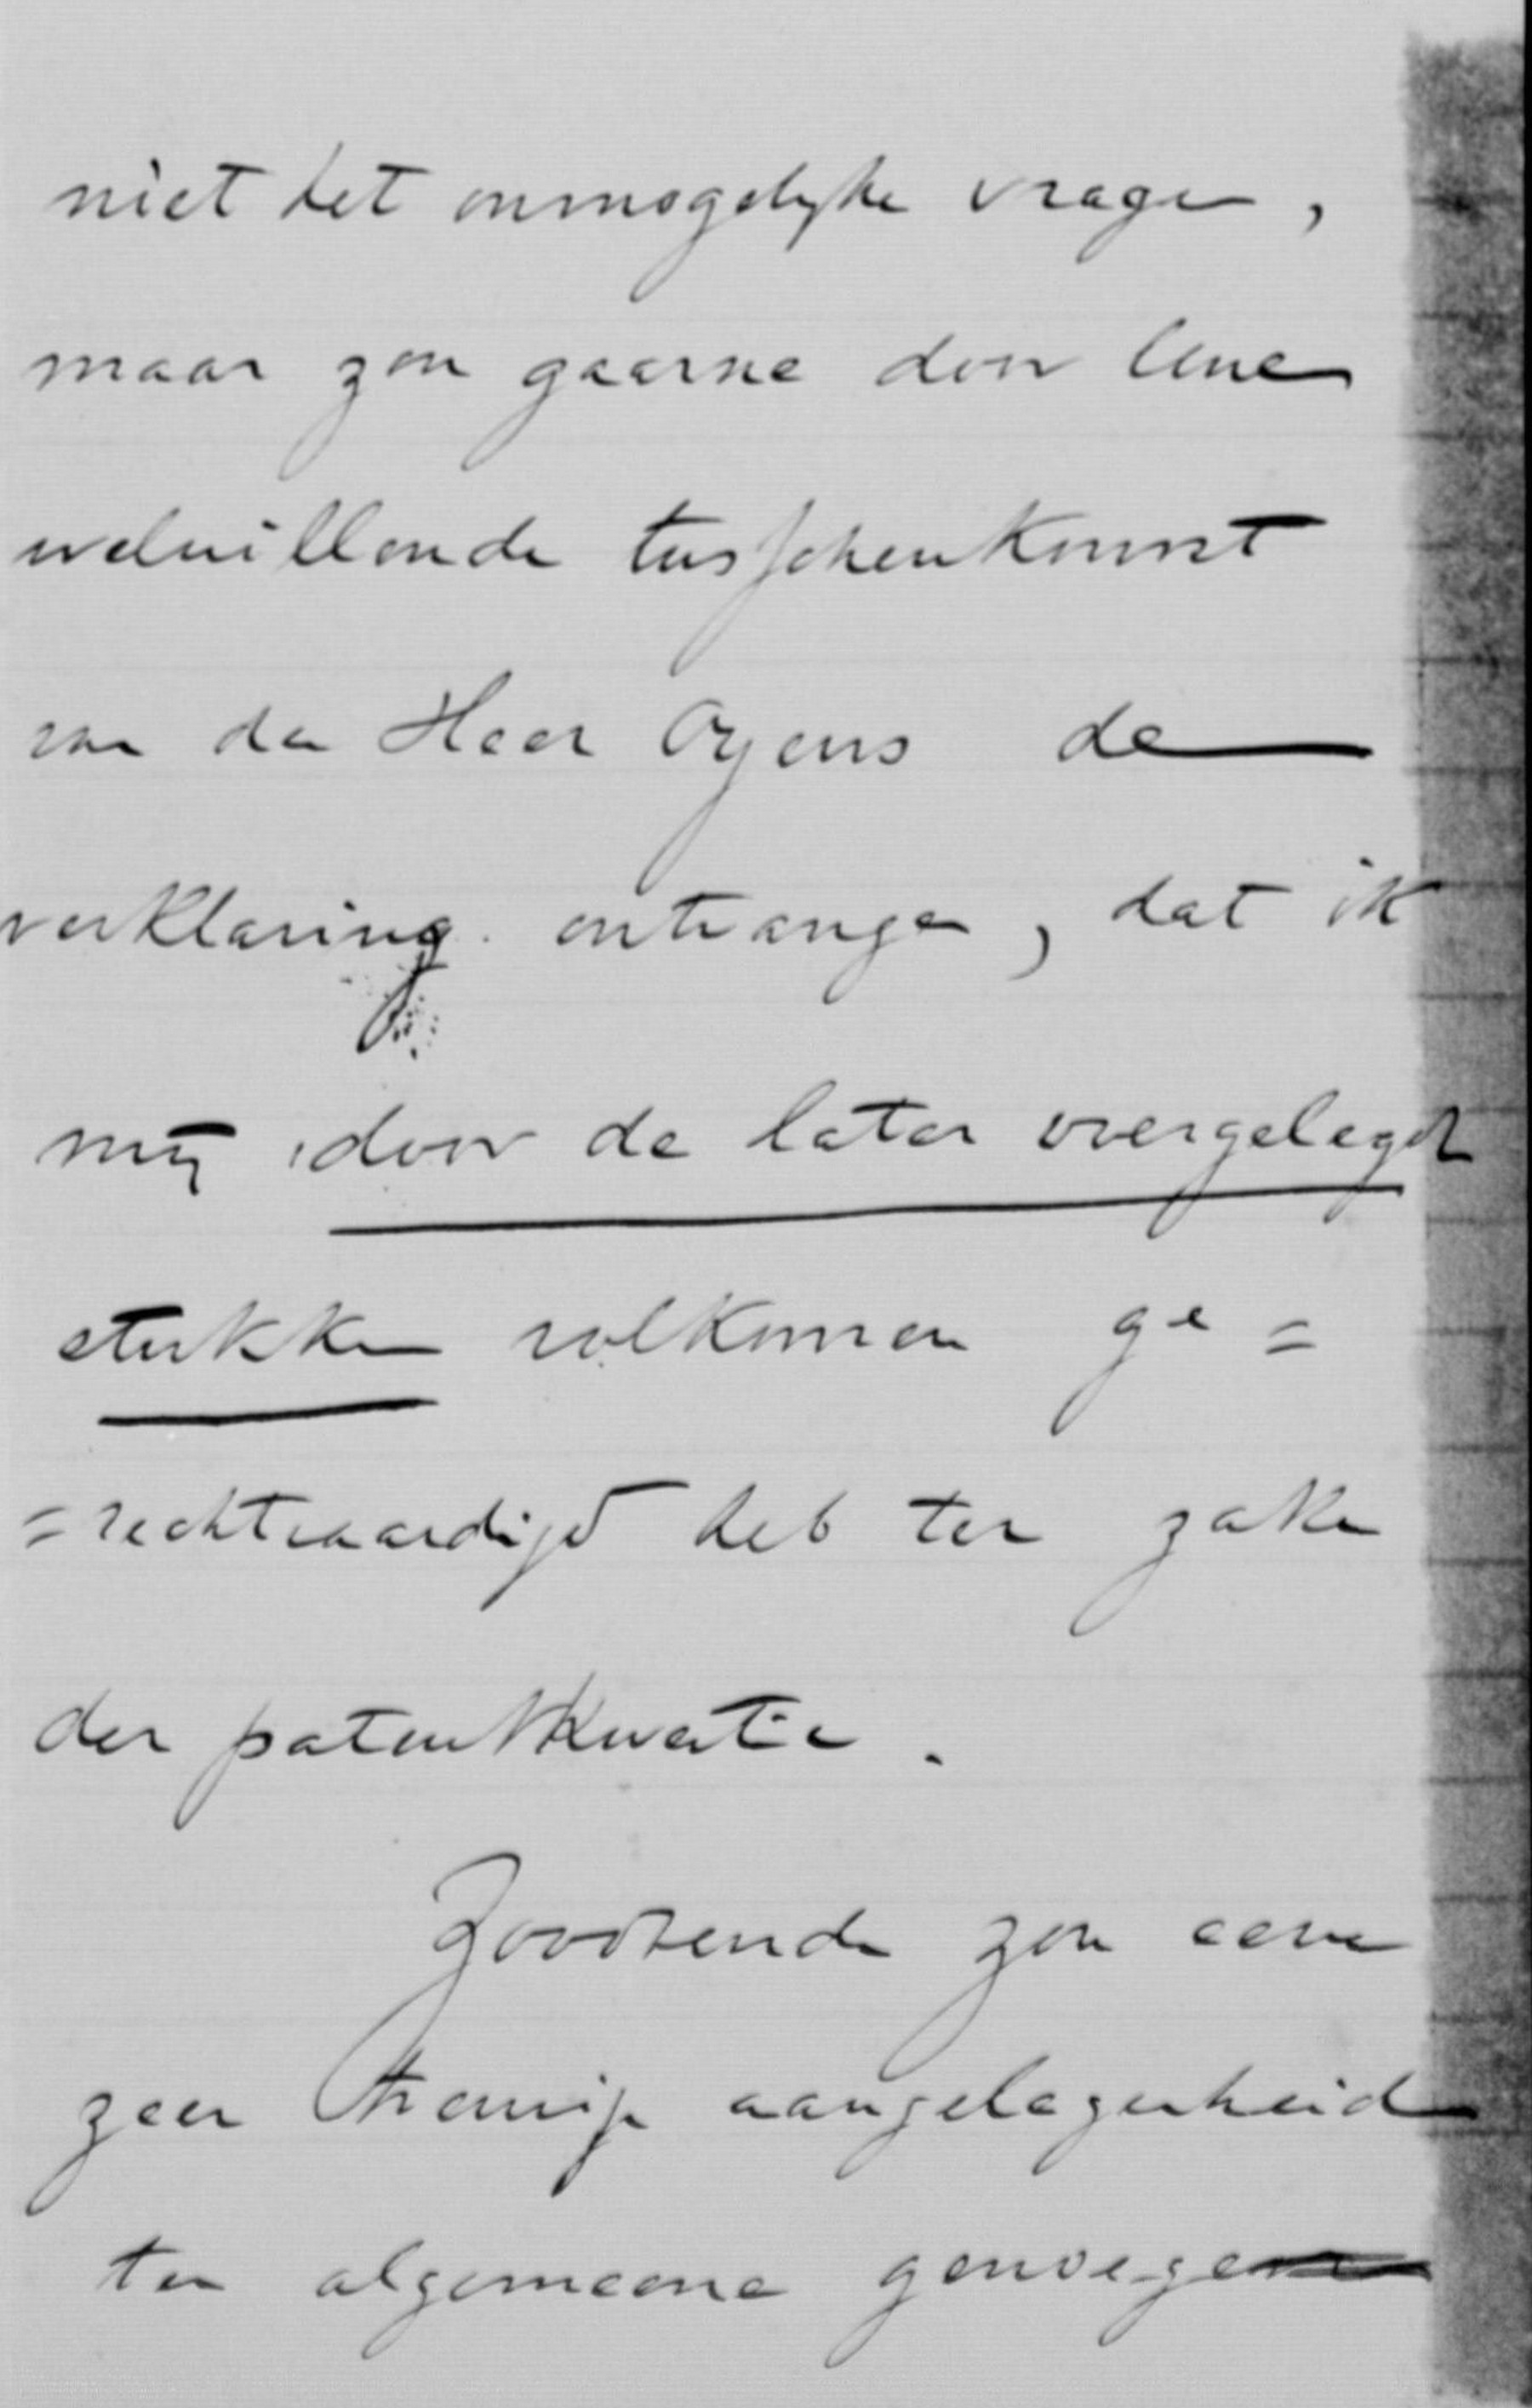 niet het onmogelyke vragen,
maar zou gaarne door Uwe
welwillende tusschenkomst
van den Heer Oyens de
verklaring ontvangen, dat ik
mij door de later overgelegde
stukken volkomen ge=
=rechtvaardigd heb ter zake
der patentkwestie.
Zoodoende zou eene
zeer treurige aangelegenheid
ten algemeene genoegen